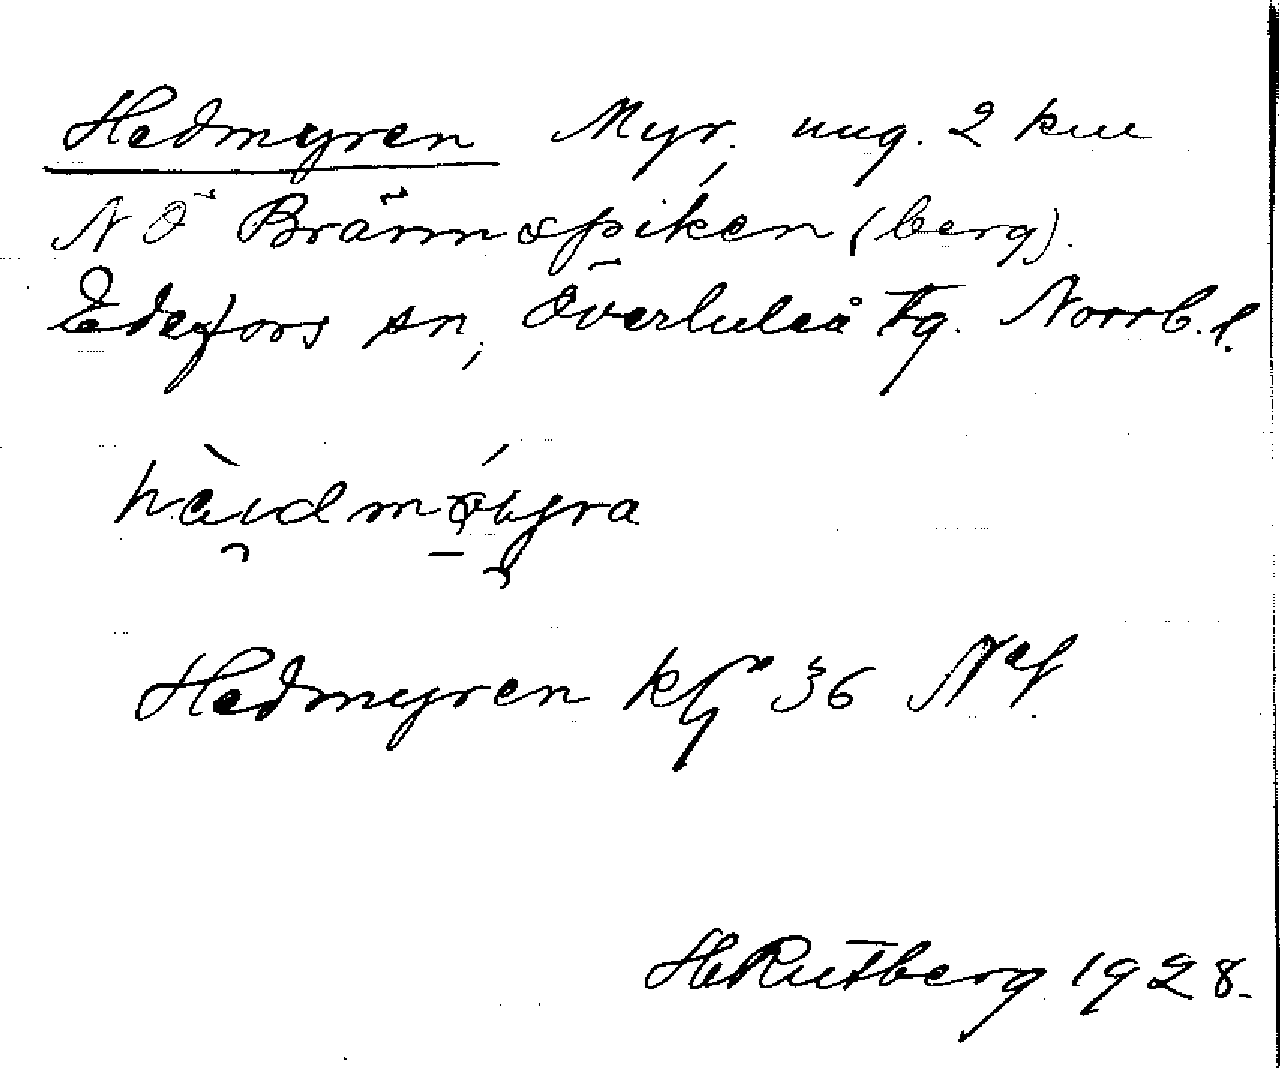 Hedmyren Myr, ung. 2 km
NÖ Brännspiken (berg).
Edefors sn, Överluleå tg. Norrb. l.
Hedmyren 36
H Rutberg 1928.